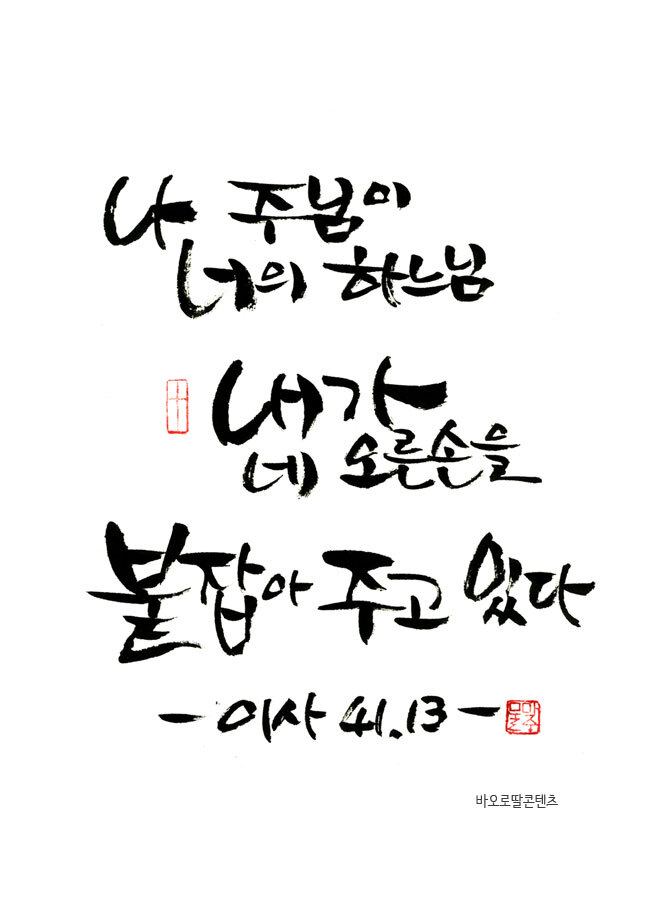 나 주님이
너의 하느님
내가
네 오른손을
붙잡아 주고 있다
- 이사 41.13 -
바오로딸콘텐츠